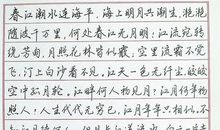 春江潮水连海平,海上明月共潮生。滟滟
随波千万里,何处春江无月明。江流宛转
绕芳甸,月照花林皆似霰。空里流霜不觉
飞,汀上白沙看不见。江天一色无纤尘,皎皎
空中孤月轮。江畔何人初见月,江月何年初
照人,人生代代无穷已,江月年年只相似。不